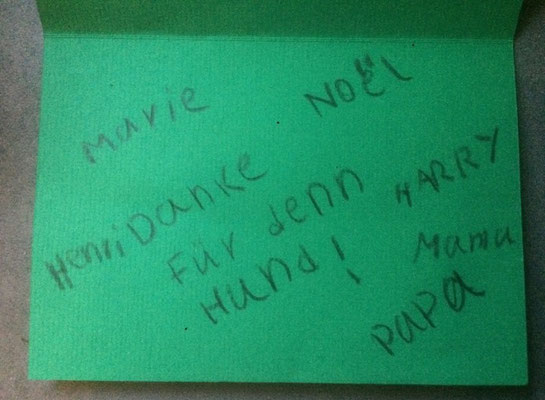 Marie
NOËL
Henri Danke
Für denn
Hund!
HARRY
Mama
PaPa